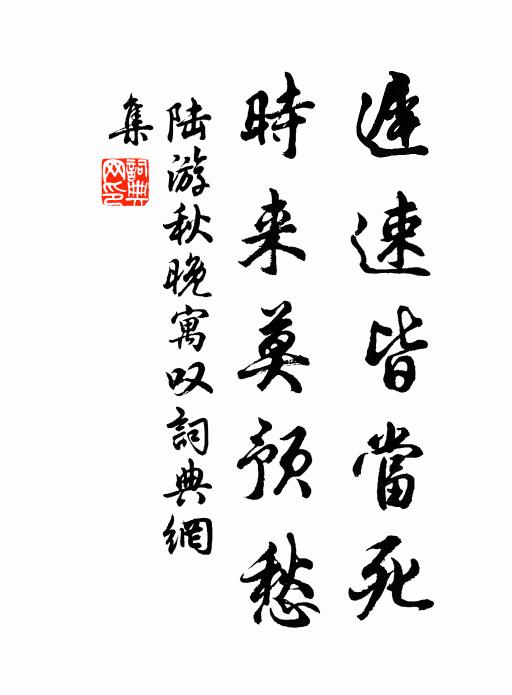 遲速皆當死
時来莫預愁
陆游秋晚寓叹詞典網
集
詞典网印